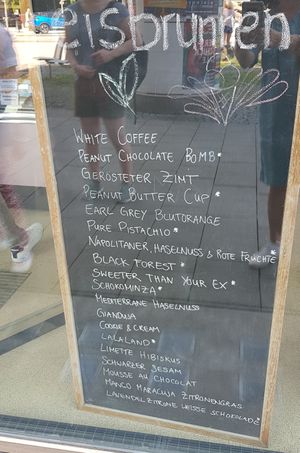 eisbrunnen
WHITE COFFEE
PEANUT CHOCOLATE BOMB*
GERÖSTETER ZIMT
PEANUT BUTTER CUP *
EARL GREY BLUTORANGE
PURE PISTACHIO *
NAPOLITANER, HASELNUSS & ROTE FRÜCHTE *
BLACK FOREST *
SWEETER THAN YOUR EX *
SCHOKOMINZA *
MEDITERRANE HASELNUSS
GIANDUJA
COOKIE & CREAM
LALALAND *
LIMETTE HIBISKUS
SCHWARZER SESAM
MOUSSE AU CHOCOLAT
MANGO MARACUJA ZITRONENGRAS
LAVENDEL ZITRONE WEISSE SCHOKOLADE *